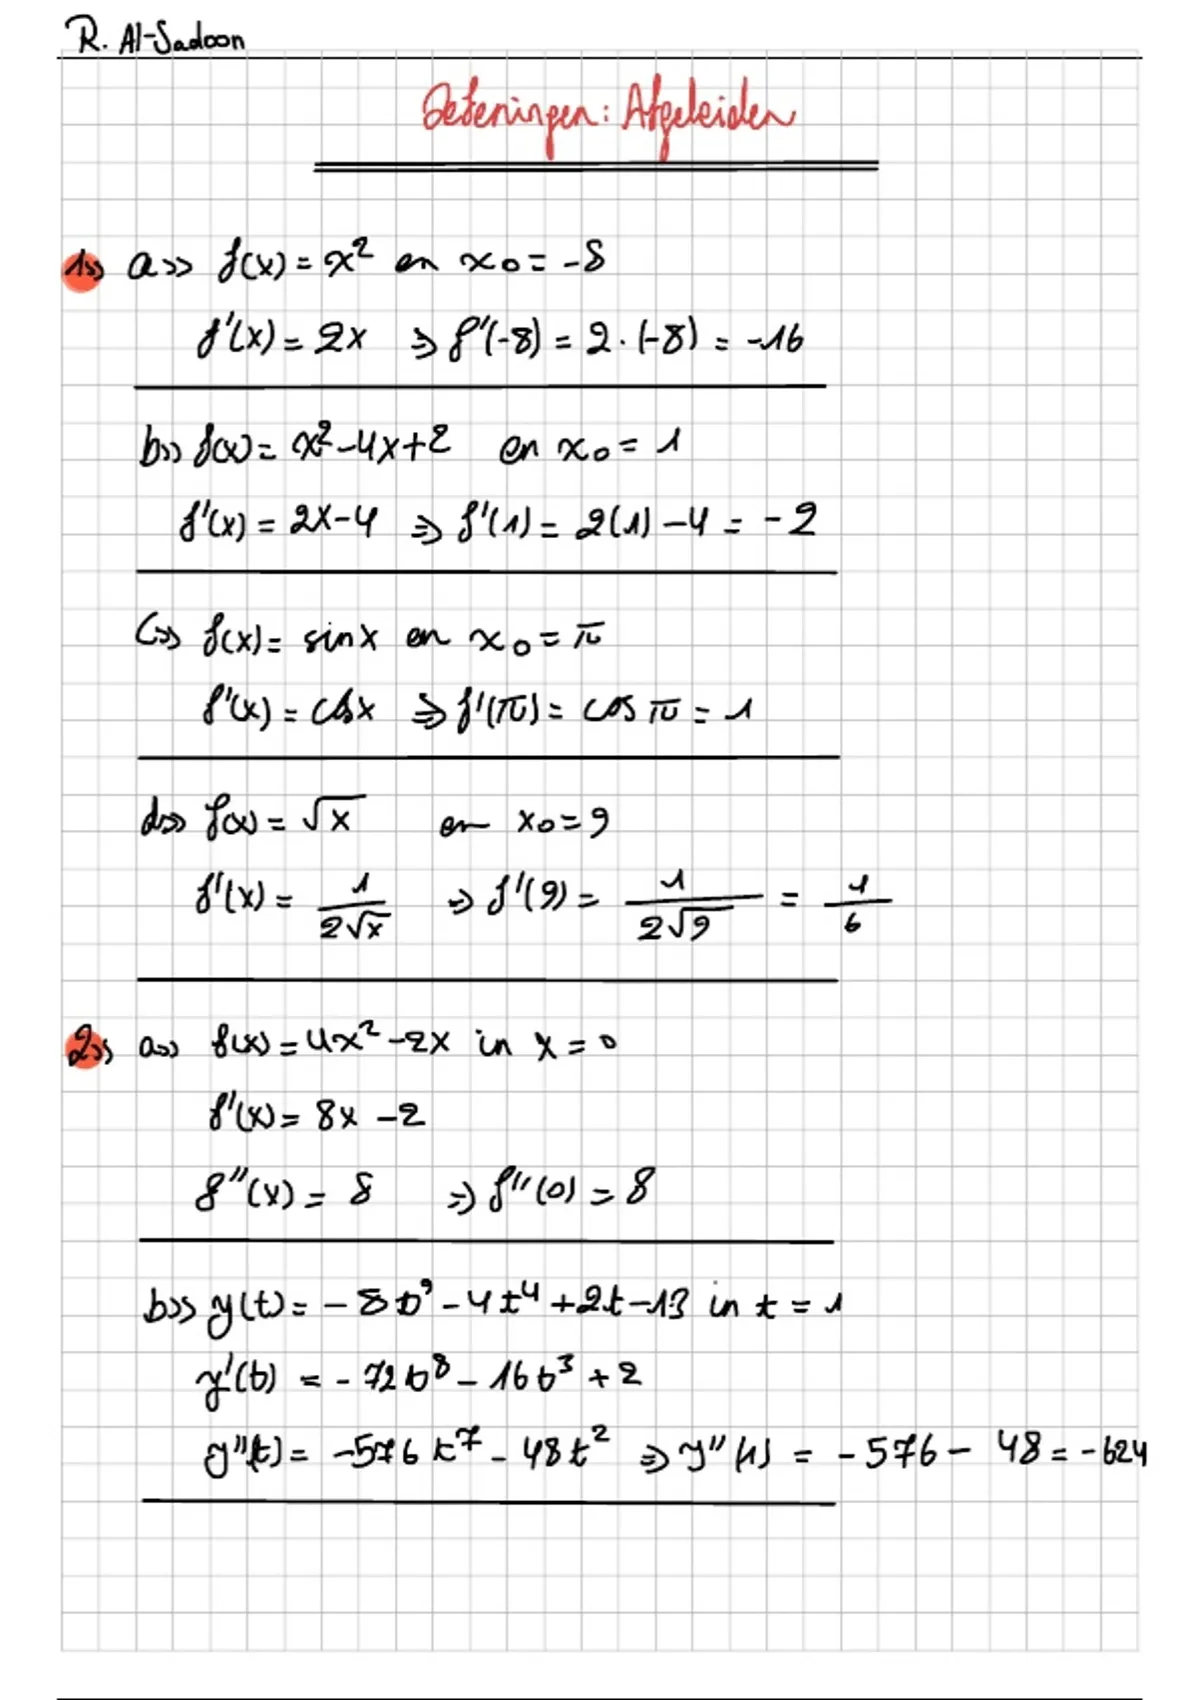 R. Al-Sadoon
Oefeningen: Afgeleiden
1>> a>> f(x) = x² en x₀ = -8
f'(x) = 2x ⇒ f'(-8) = 2 · (-8) = -16
b>> f(x) = x² - 4x + 2 en x₀ = 1
f'(x) = 2x - 4 ⇒ f'(1) = 2(1) - 4 = -2
C>> f(x) = sin x en x₀ = π
f'(x) = cos x ⇒ f'(π) = cos π = 1
d>> f(x) = √x en x₀ = 9
f'(x) = 1/(2√x) ⇒ f'(9) = 1/(2√9) = 1/6
2>> a>> f(x) = 4x² - 2x in x = 0
f'(x) = 8x - 2
f''(x) = 8 ⇒ f''(0) = 8
b>> y(t) = - 8t⁹ - 4t⁴ + 2t - 13 in t = 1
y'(t) = - 72t⁸ - 16t³ + 2
y''(t) = -576t⁷ - 48t² ⇒ y''(1) = - 576 - 48 = - 624